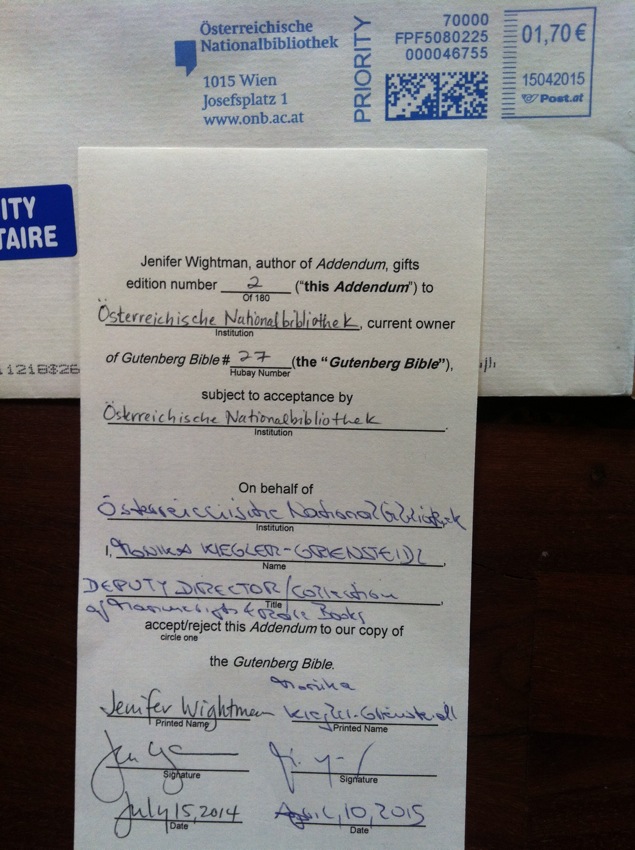 Österreichische
Nationalbibliothek
1015 Wien
Josefsplatz 1
www.onb.ac.at
PRIORITY
70000
FPF5080225
000046755
01,70 €
15042015
Post.at
ITY
TAIRE
Jenifer Wightman, author of Addendum, gifts
edition number 2 ("this Addendum") to
Of 180
Österreichische Nationalbibliothek, current owner
Institution
of Gutenberg Bible # 27 (the "Gutenberg Bible"),
Hubay Number
subject to acceptance by
Österreichische Nationalbibliothek.
Institution
On behalf of
Österreichische Nationalbibliothek
Institution
I, MONIKA KIEGLER-GRIENSTEIDL
Name
DEPUTY DIRECTOR/Collection,
Title
of Manuscripts & Rare Books
accept/reject this Addendum to our copy of
circle one
the Gutenberg Bible.
Monika
Jenifer Wightman Kiegler-Griensteidl
Printed Name Printed Name
Signature Signature
July 15, 2014 April, 10, 2015
Date Date